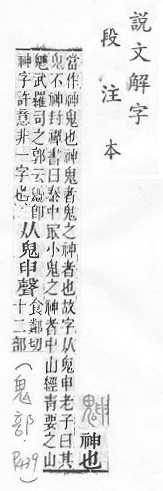 說文解字
段注本
䰠 神也
當作神鬼也神鬼者鬼之神者也故字从鬼申老子曰其
鬼不神封禪書曰秦中冣小鬼之神者中山經青要之山
䰠武羅司之郭云䰠卽
神字許意非一字也
从鬼申聲
食鄰切
十二部
(鬼部
P439)